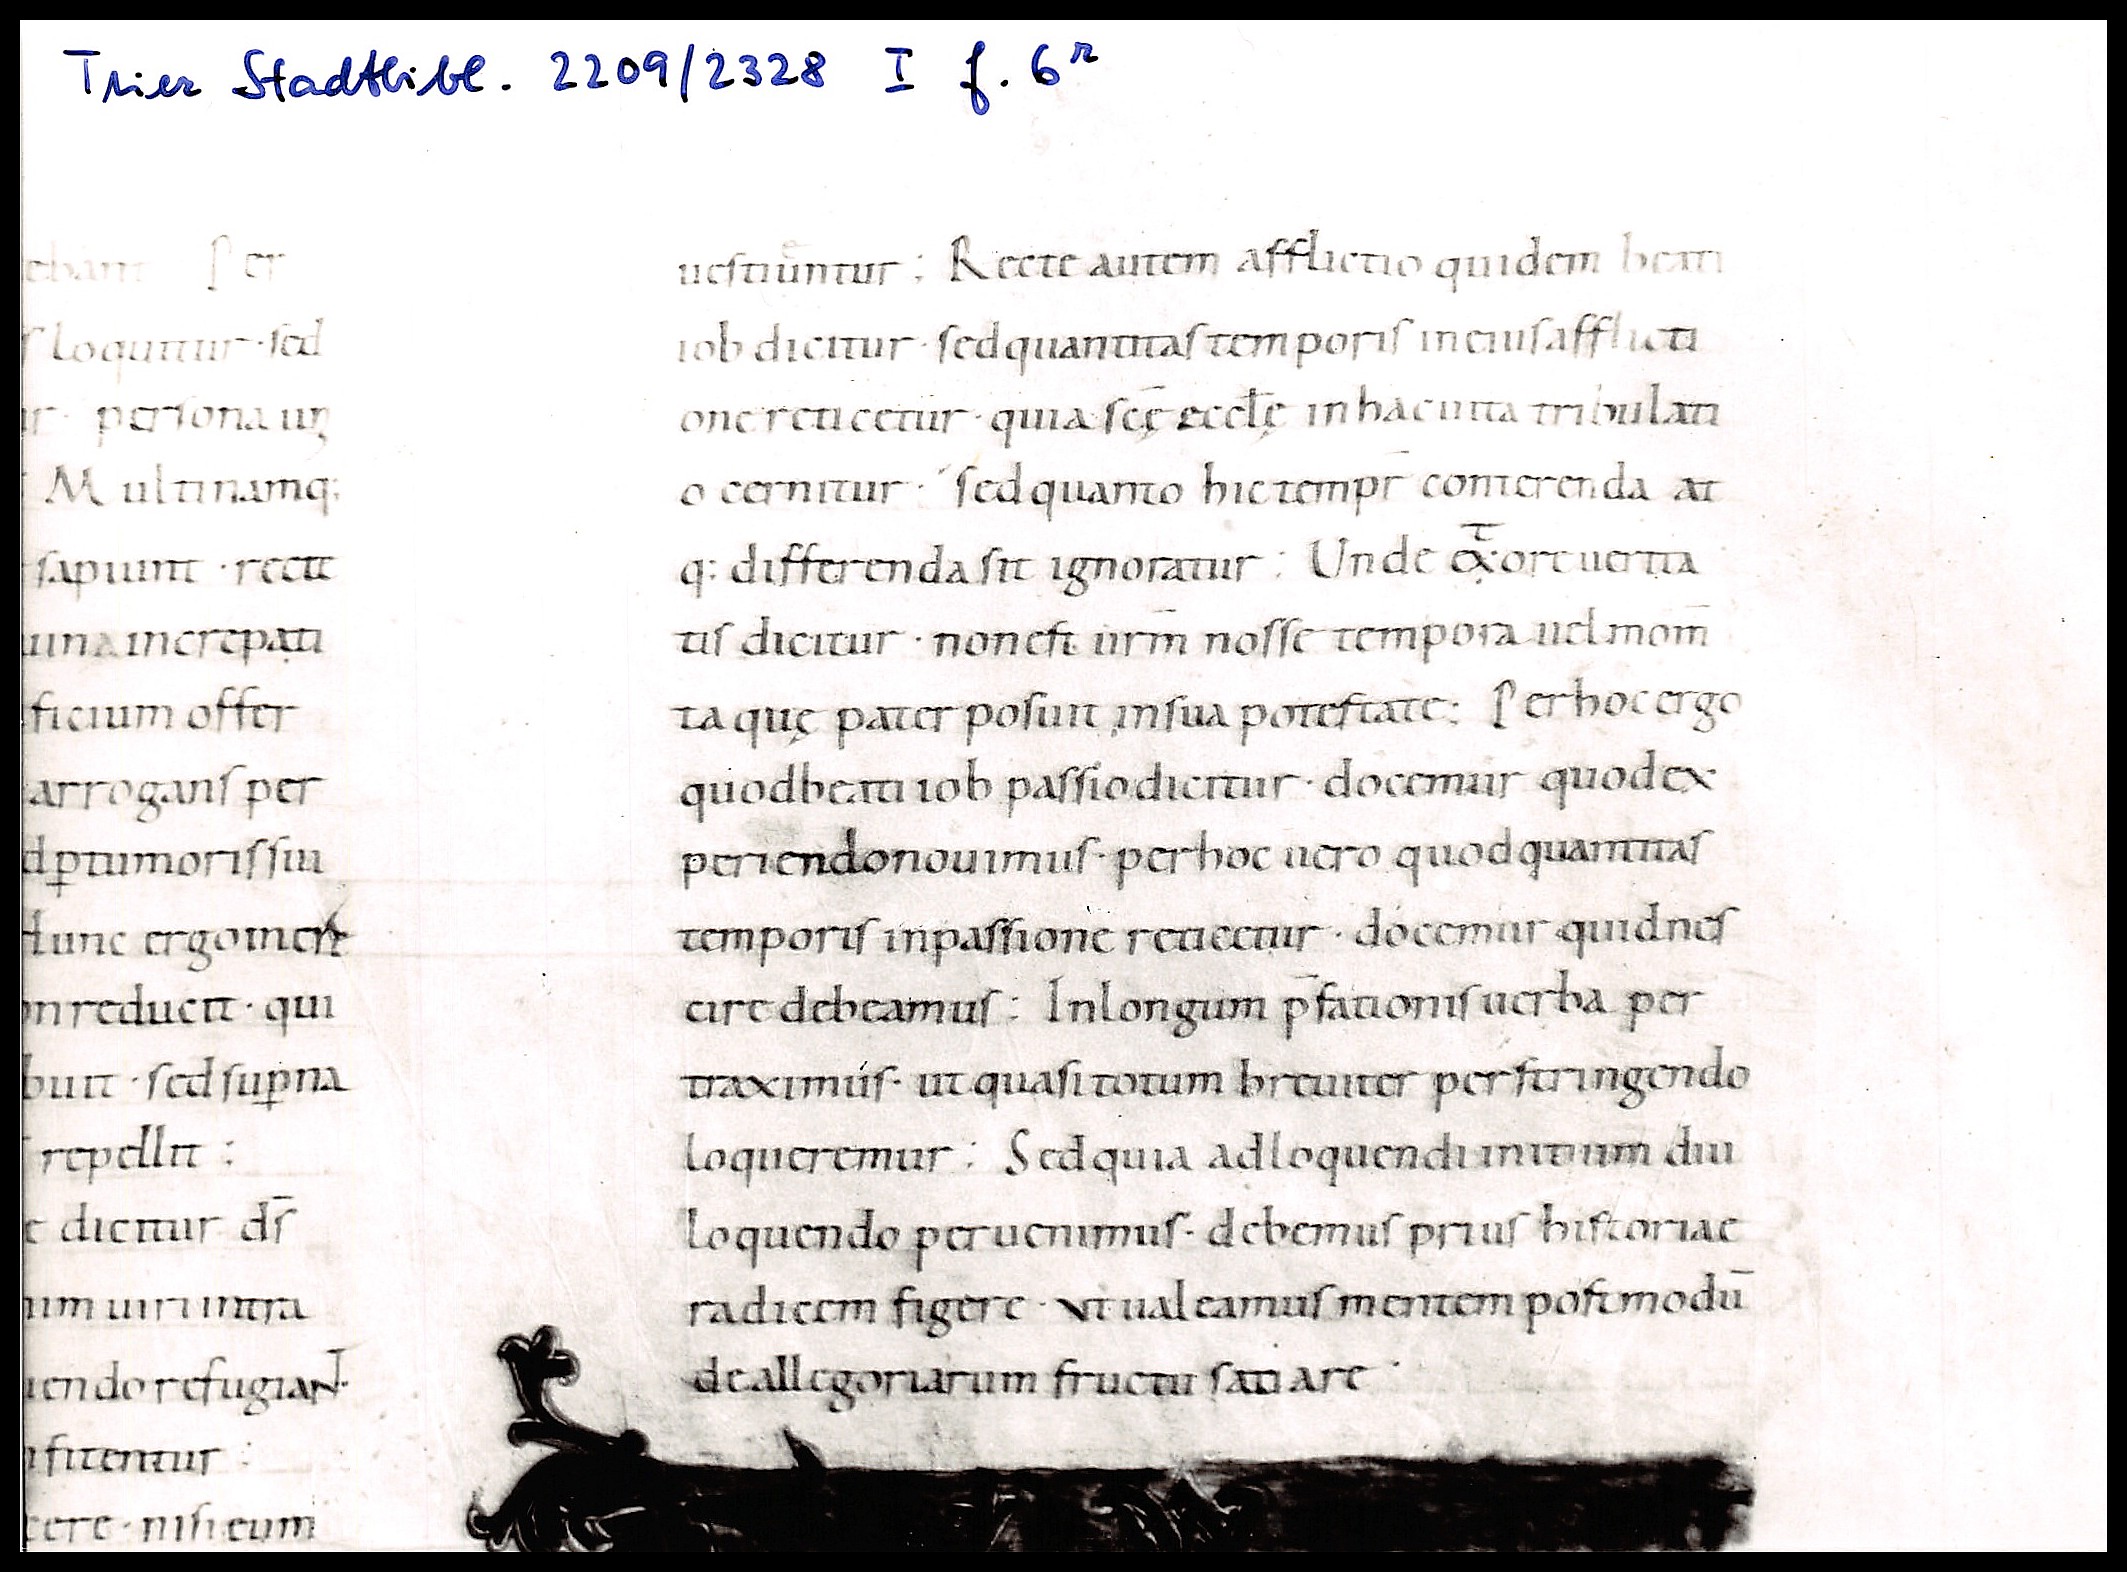 Trier Stadtbibl. 2209/2328 I f. 6r
ebant Per
s loquitur · sed
ur · persona un
Multi namq;
sapiunt · recti
uina increpati
ficium offer
arrogans per
d ꝑtumoris sui
Hunc ergo in
on reducit · qui
buit · sed suꝑna
repellit :
e dicitur ds̄
um uiri intra
uendo refugiant·
nfitentur :
cere · nisi eum
uestiuntur : Recte autem afflictio quidem beati
iob dicitur · sed quantitas temporis in eius afflicti
one reticetur · quia scę̄ eccłę in hac uita tribulati
o cernitur · sed quanto hic tempr̄ conterenda at
q: differenda sit ignoratur : Unde ex ore uerita
tis dicitur · non est urm̄ nosse tempora uel mom̄
ta quę pater posuit in sua potestate : Per hoc ergo
quod beati iob passio dicitur · docemur quod ex
periendo nouimus · per hoc uero quod quantitas
temporis in passione reticetur · docemur quid nes
cire debeamus : In longum p̄fationis uerba per
traximus · ut quasi totum breuiter perstringendo
loqueremur : Sed quia ad loquendi initium diu
loquendo peruenimus · debemus prius historiae
radicem figere · ut ualeamus mentem postmodū
de allegoriarum fructu satiare ·